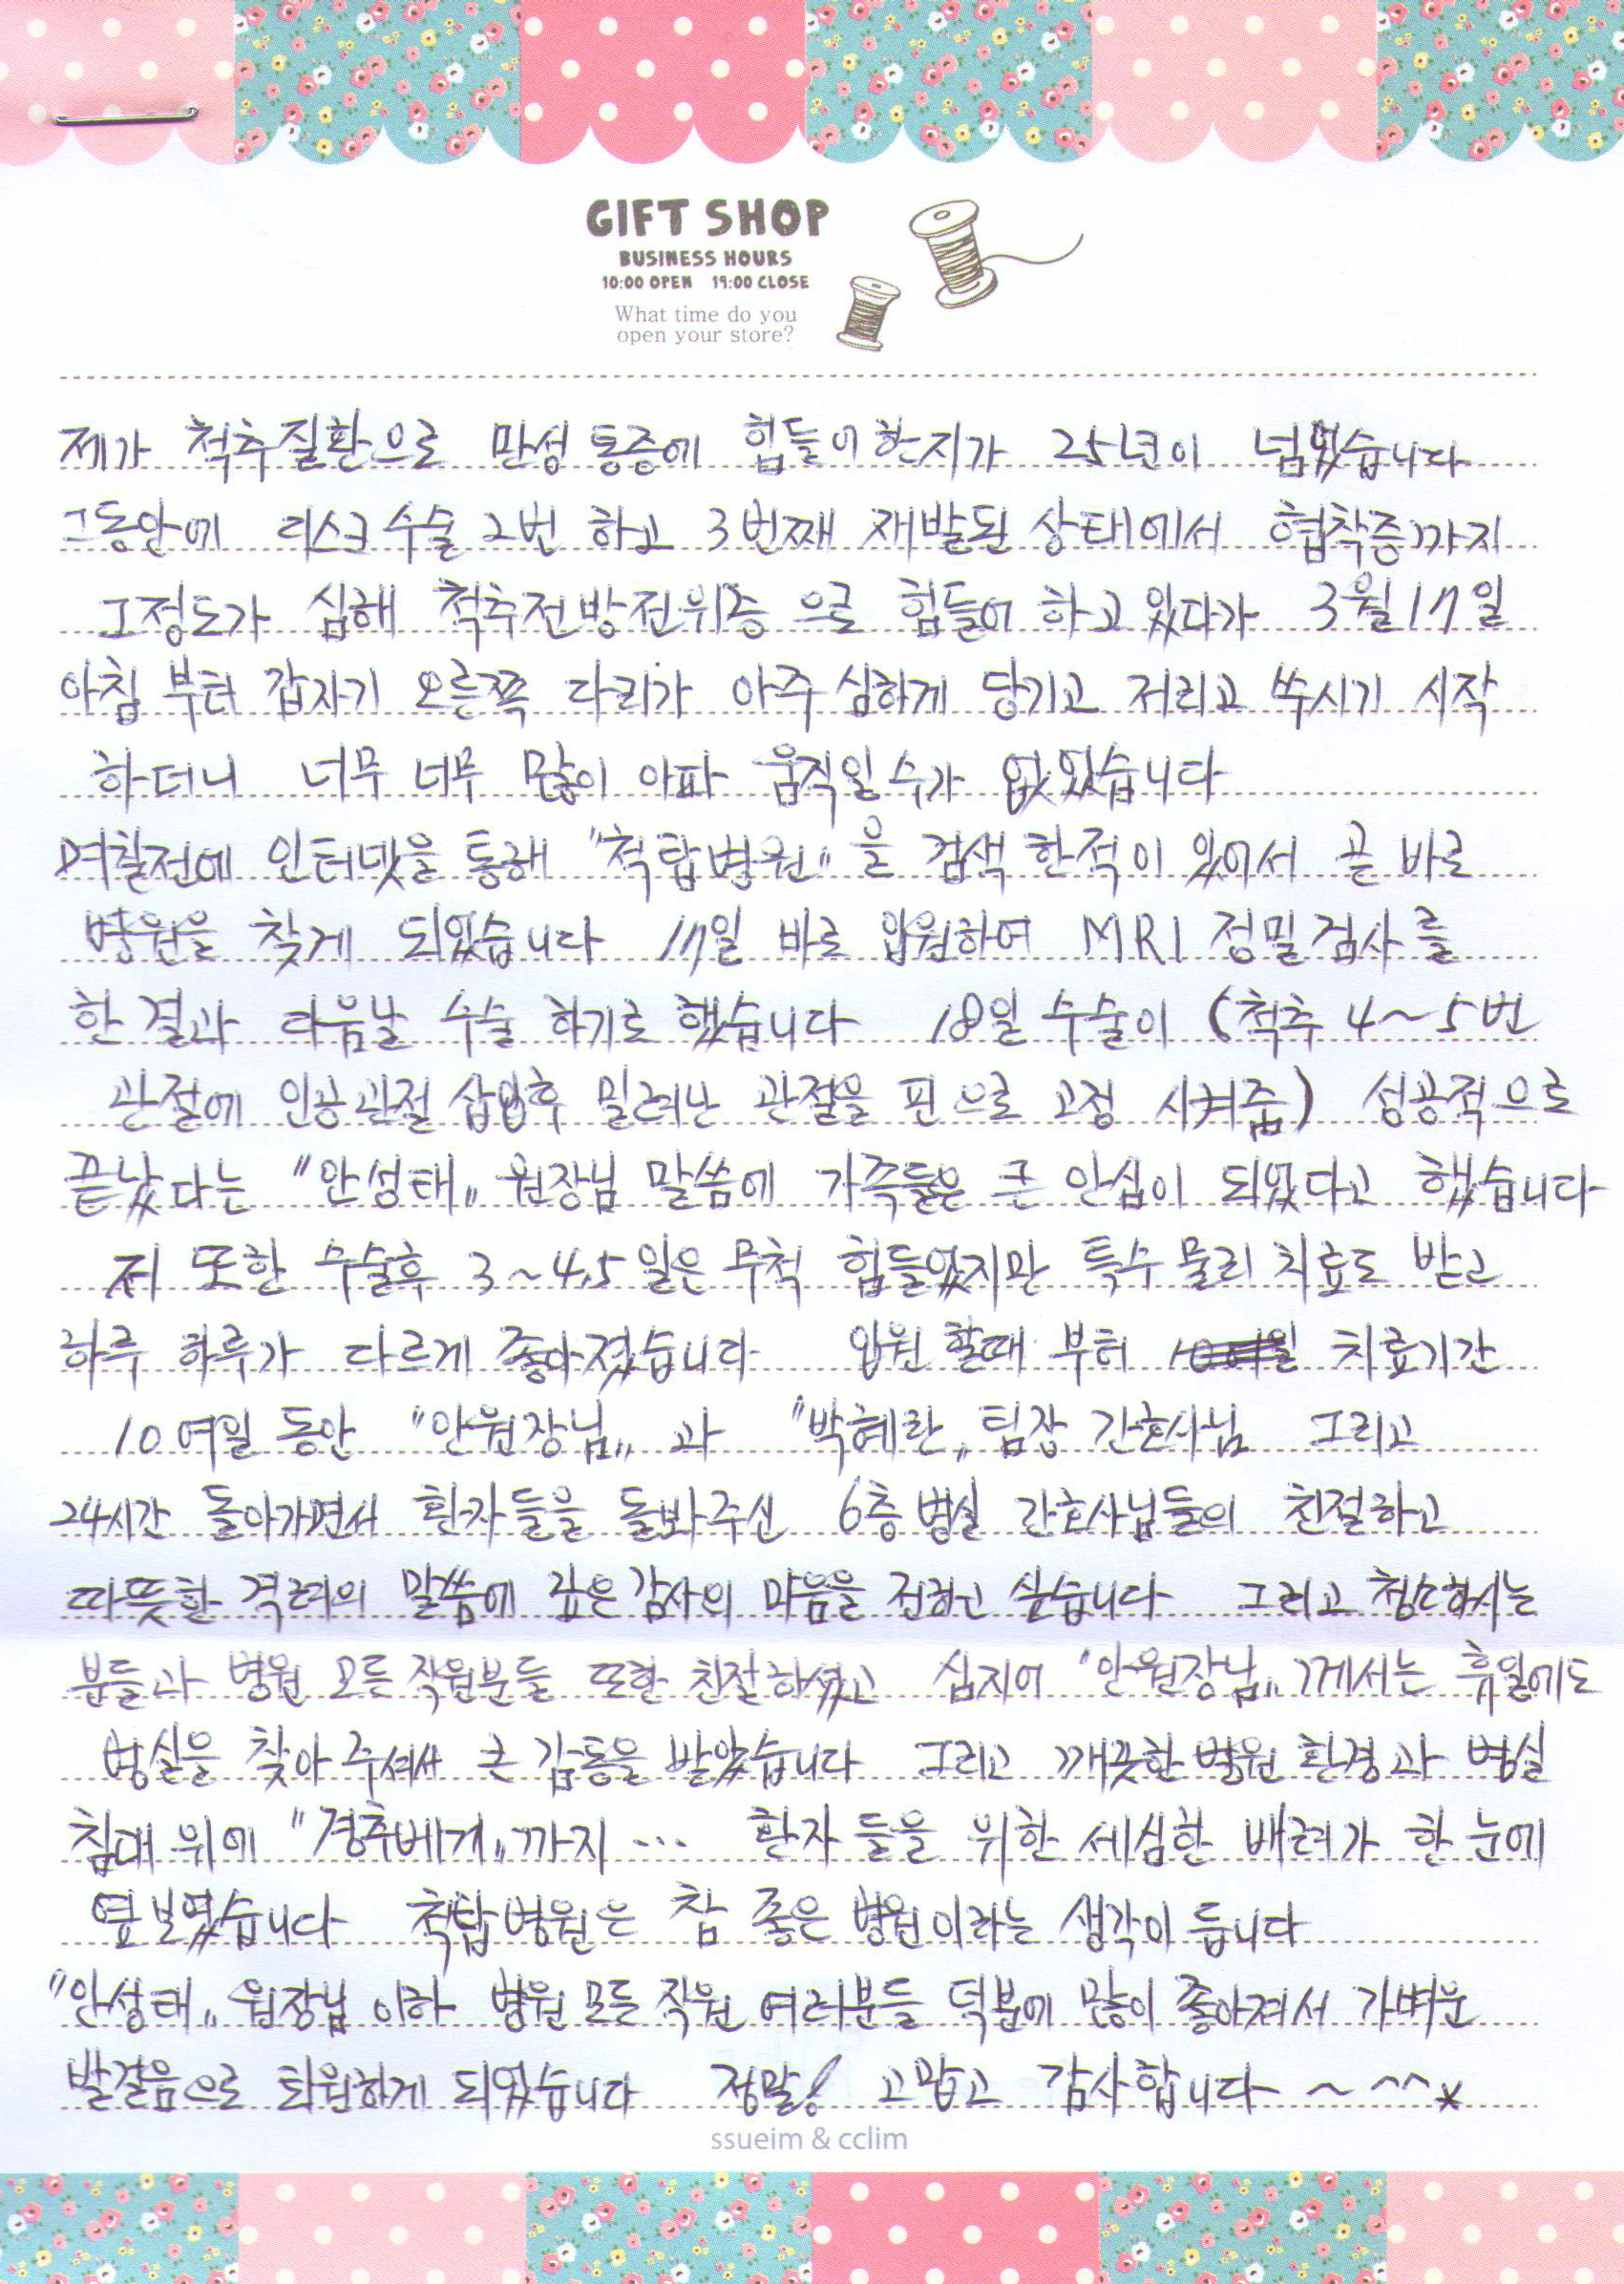 GIFT SHOP
BUSINESS HOURS
10:00 OPEN 19:00 CLOSE
What time do you
open your store?
제가 척추질환으로 만성통증에 힘들어한지가 25년이 넘었습니다
그동안에 디스크수술 2번 하고 3번째 재발된 상태에서 협착증까지
그정도가 심해 척추전방전위증 으로 힘들어 하고 있다가 3월 17일
아침 부터 갑자기 오른쪽 다리가 아주 심하게 당기고 저리고 쑤시기 시작
하더니 너무 너무 많이 아파 움직일수가 없었습니다
며칠전에 인터넷을 통해 "척탑병원" 을 검색 한적이 있어서 곧 바로
병원을 찾게 되었습니다 17일 바로 입원하여 MRI 정밀검사를
한 결과 다음날 수술 하기로 했습니다 18일 수술이 (척추 4~5번
관절에 인공관절 삽입후 밀려난 관절을 핀으로 고정 시켜줌) 성공적으로
끝났다는 "안성태" 원장님 말씀에 가족들은 큰 안심이 되었다고 했습니다
저 또한 수술후 3~4,5일은 무척 힘들었지만 특수 물리치료도 받고
하루 하루가 다르게 좋아졌습니다 입원 할때 부터 치료기간
10여일 동안 "안원장님" 과 "박혜란" 팀장 간호사님 그리고
24시간 돌아가면서 환자들을 돌봐주신 6층 병실 간호사님들의 친절하고
따뜻한 격려의 말씀에 깊은 감사의 마음을 전하고 싶습니다 그리고 청소하시는
분들과 병원 모든 직원분들 또한 친절하셨고 심지어 "안원장님" 께서는 휴일에도
병실을 찾아 주셔서 큰 감동을 받았습니다 그리고 깨끗한 병원 환경과 병실
침대 위에 "경추베개" 까지 ... 환자 들을 위한 세심한 배려가 한 눈에
엿보였습니다 척탑병원은 참 좋은 병원이라는 생각이 듭니다
"안성태" 원장님 이하 병원 모든 직원 여러분들 덕분에 많이 좋아져서 가벼운
발걸음으로 퇴원하게 되었습니다 정말! 고맙고 감사합니다 ~ ^^*
ssueim & cclim